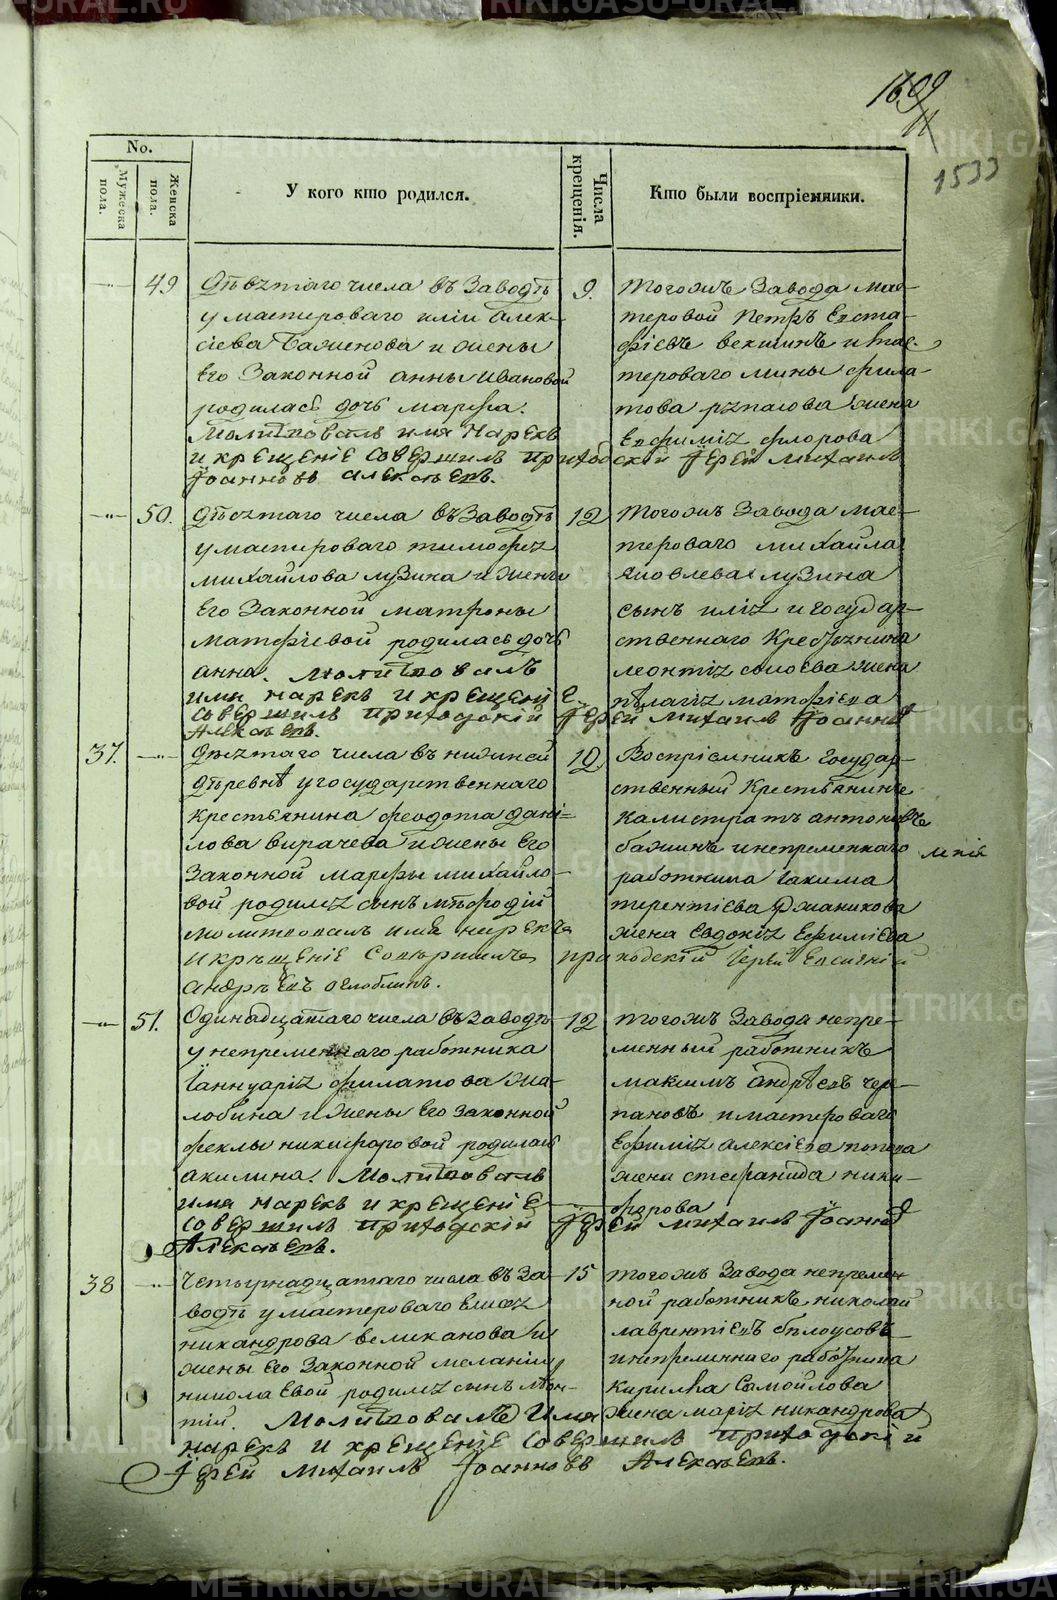 1609
11
1533
No.
Мужеска пола.
Женска пола.
У кого кто родился.
Числа крещенія.
Кто были воспріемники.
49
Девятаго числа въ Заводѣ
у мастероваго иліи Алек-
сіева Баженова и жены
Его Законной анны Ивановой
родилась дочь марфа.
Молитвовалъ имя нарекъ
и крещеніе совершилъ приход
Іоанновъ алексѣевъ.
9.
Тогожъ Завода мас-
теровой Петръ Евста-
фіевъ векшинъ и мас-
тероваго мины фила-
това жена
Евфимія флорова
ской Іерей михаилъ
50.
Девятаго числа въ Заводѣ
у мастероваго тимофея
михайлова лузина и жены
Его Законной матроны
матфіевой родилась дочь
анна. молитвовалъ
имя нарекъ и крещені
совершилъ приходскій
Алексѣевъ.
12
Тогожъ Завода мас-
тероваго михайла
яковлева лузина
сынъ илія и государ-
ственнаго Крестьянина
леонтія жена
пелагія матфіева
Іерей михаилъ Іоанновъ
37.
Девятаго числа въ нижней
деревнѣ у государственнаго
крестьянина феодота дані-
лова вирачева и жены Его
Законной марфы михайло-
вой родился сынъ мефодій
молитвовалъ имя нарекъ
и крещеніе Совершилъ при
андрѣевъ оглоблинъ.
10
Воспріемникъ государ-
ственный Крестьянинъ
калистратъ антоновъ
бажинъ и непременнаго
работника Іакима
терентіева жена
Евдокія Ефиміева
ходскій Іерей Евсигній
51.
Одинадцатаго числа въ Заводѣ
у непременнаго работника
Іаннуарія филатова жа-
лобина и жены Его законной
феклы никифоровой родилась
акилина. Молитвовалъ
имя нарекъ и крещеніе
совершилъ приходскій
Алексѣевъ.
12
тогожъ Завода непре-
менный работникъ
максимъ андрѣевъ чер-
пановъ и мастероваго
Ефимія алексіева попова
жена стефанида ники-
форова
Іерей михаилъ Іоанновъ
38
Четырнадцатаго числа въ За-
водѣ у мастероваго Елисея
никандрова великанова и
жены Его Законной меланіи
николаевой родился сынъ леон-
тій. Молитвовалъ Имя
нарекъ и крещеніе совершилъ приходскій
Іерей михаилъ Іоанновъ Алексѣевъ.
15
тогожъ Завода непремен-
ной работникъ николай
лаврентіевъ белоусовъ
и непременнаго работника
Кирилла Самойлова
жена марія никандрова